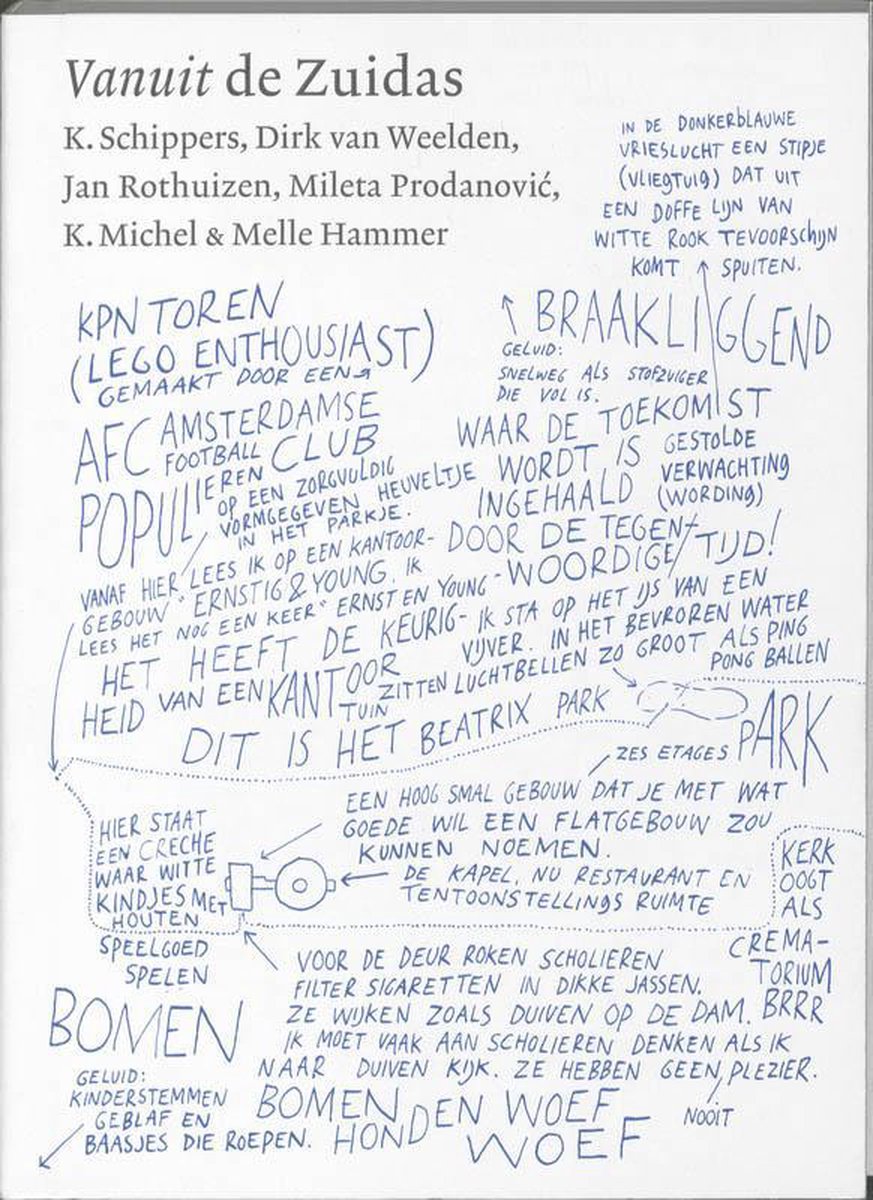 Vanuit de Zuidas
K. Schippers, Dirk van Weelden,
Jan Rothuizen, Mileta Prodanović,
K. Michel & Melle Hammer
IN DE DONKERBLAUWE
VRIESLUCHT EEN STIPJE
(VLIEGTUIG) DAT UIT
EEN DOFFE LIJN VAN
WITTE ROOK TEVOORSCHIJN
KOMT SPUITEN.
KPN TOREN
(LEGO ENTHOUSIAST)
GEMAAKT DOOR EEN
BRAAKLIGGEND
GELUID:
SNELWEG ALS STOFZUIGER
DIE VOL IS.
AFC AMSTERDAMSE
FOOTBALL CLUB
POPULIEREN
OP EEN ZORGVULDIG
VORMGEGEVEN HEUVELTJE
IN HET PARKJE.
WAAR DE TOEKOMST
WORDT IS
INGEHAALD
DOOR DE TEGEN-
WOORDIGE TIJD!
GESTOLDE
VERWACHTING
(WORDING)
VANAF HIER LEES IK OP EEN KANTOOR-
GEBOUW "ERNSTIG & YOUNG. IK
LEES HET NOG EEN KEER" ERNST EN YOUNG-
HET HEEFT DE KEURIG-
HEID VAN EEN KANTOOR
TUIN
IK STA OP HET IJS VAN EEN
VIJVER. IN HET BEVROREN WATER
ZITTEN LUCHTBELLEN ZO GROOT ALS PING
PONG BALLEN
DIT IS HET BEATRIX PARK
PARK
ZES ETAGES
EEN HOOG SMAL GEBOUW DAT JE MET WAT
GOEDE WIL EEN FLATGEBOUW ZOU
KUNNEN NOEMEN.
HIER STAAT
EEN CRECHE
WAAR WITTE
KINDJES MET
HOUTEN
SPEELGOED
SPELEN
DE KAPEL, NU RESTAURANT EN
TENTOONSTELLINGS RUIMTE
KERK
OOGT
ALS
CREMA-
TORIUM
BRRR
VOOR DE DEUR ROKEN SCHOLIEREN
FILTER SIGARETTEN IN DIKKE JASSEN.
ZE WIJKEN ZOALS DUIVEN OP DE DAM.
IK MOET VAAK AAN SCHOLIEREN DENKEN ALS IK
NAAR DUIVEN KIJK. ZE HEBBEN GEEN PLEZIER.
NOOIT
BOMEN
GELUID:
KINDERSTEMMEN
GEBLAF EN
BAASJES DIE ROEPEN.
BOMEN
HONDEN WOEF
WOEF